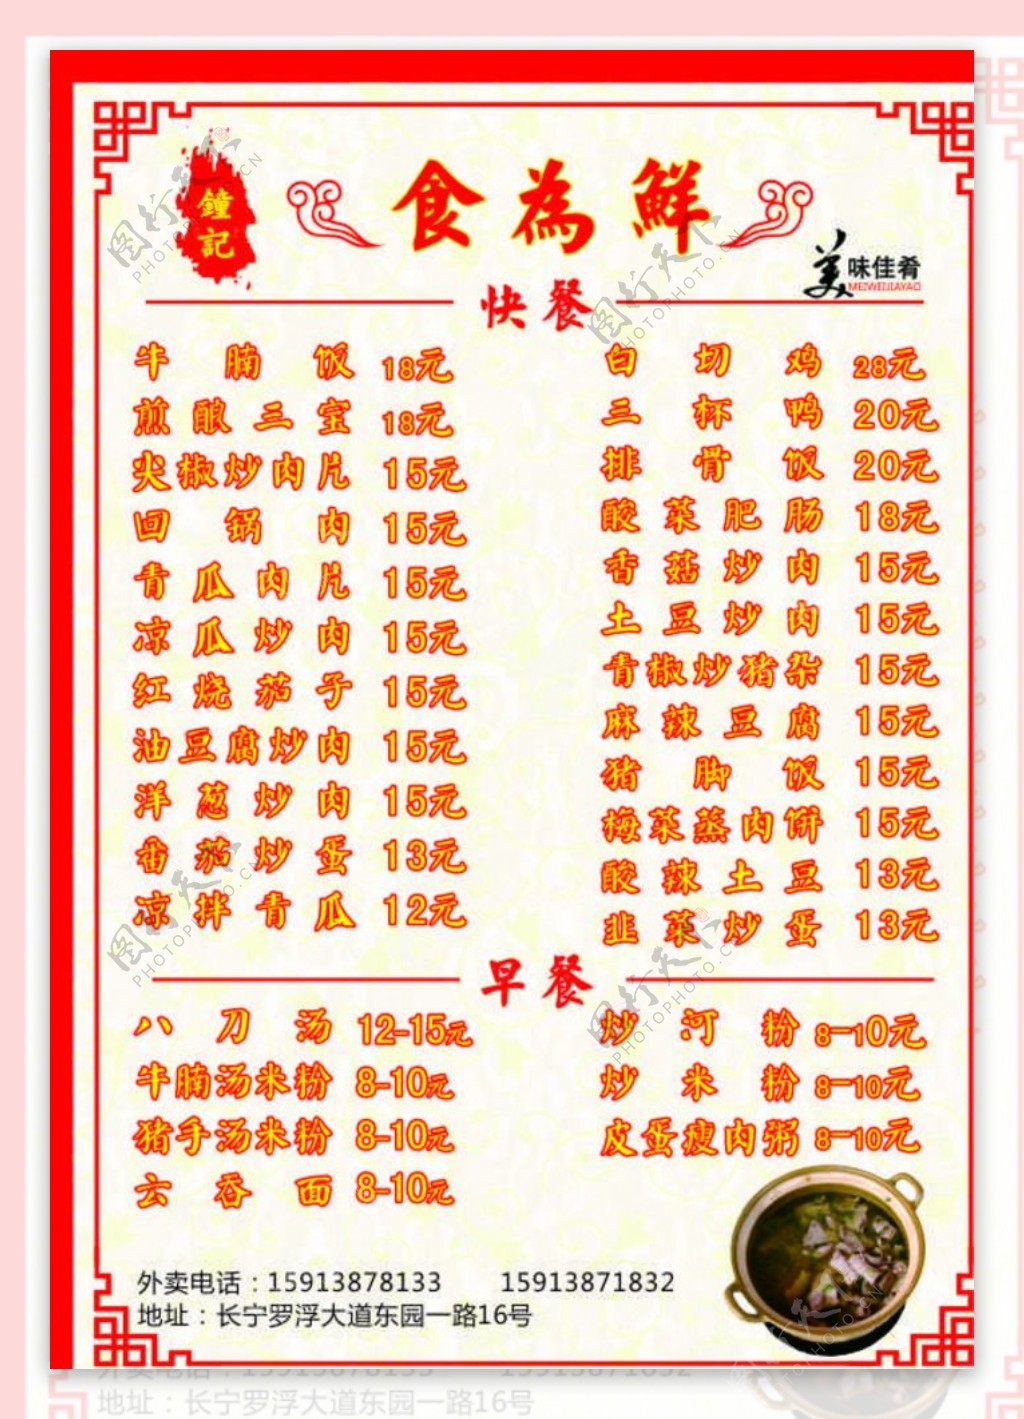 鐘記
食為鮮
美味佳肴
MEIWEIJIAYAO
快餐
牛腩饭 18元
煎酿三宝 18元
尖椒炒肉片 15元
回锅肉 15元
青瓜肉片 15元
凉瓜炒肉 15元
红烧茄子 15元
油豆腐炒肉 15元
洋葱炒肉 15元
番茄炒蛋 13元
凉拌青瓜 12元
白切鸡 28元
三杯鸭 20元
排骨饭 20元
酸菜肥肠 18元
香菇炒肉 15元
土豆炒肉 15元
青椒炒猪杂 15元
麻辣豆腐 15元
猪脚饭 15元
梅菜蒸肉饼 15元
酸辣土豆 13元
韭菜炒蛋 13元
早餐
八刀汤 12-15元
牛腩汤米粉 8-10元
猪手汤米粉 8-10元
云吞面 8-10元
炒河粉 8-10元
炒米粉 8-10元
皮蛋瘦肉粥 8-10元
外卖电话：15913878133 15913871832
地址：长宁罗浮大道东园一路16号
地址：长宁罗浮大道东园一路16号